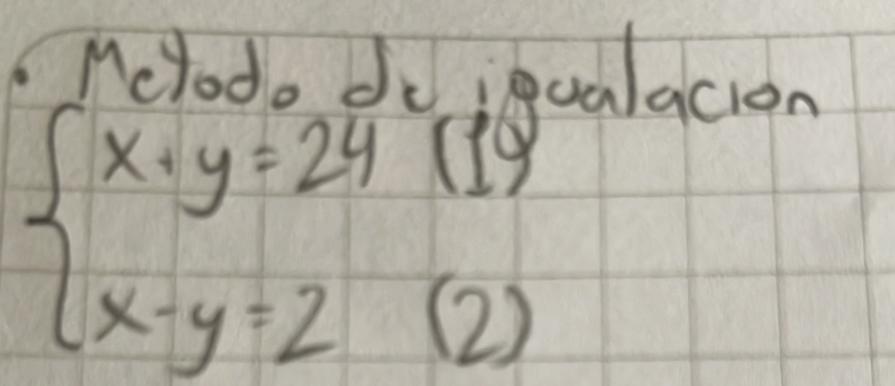 • Metodo de igualacion
x+y=24 (1)
x-y=2 (2)